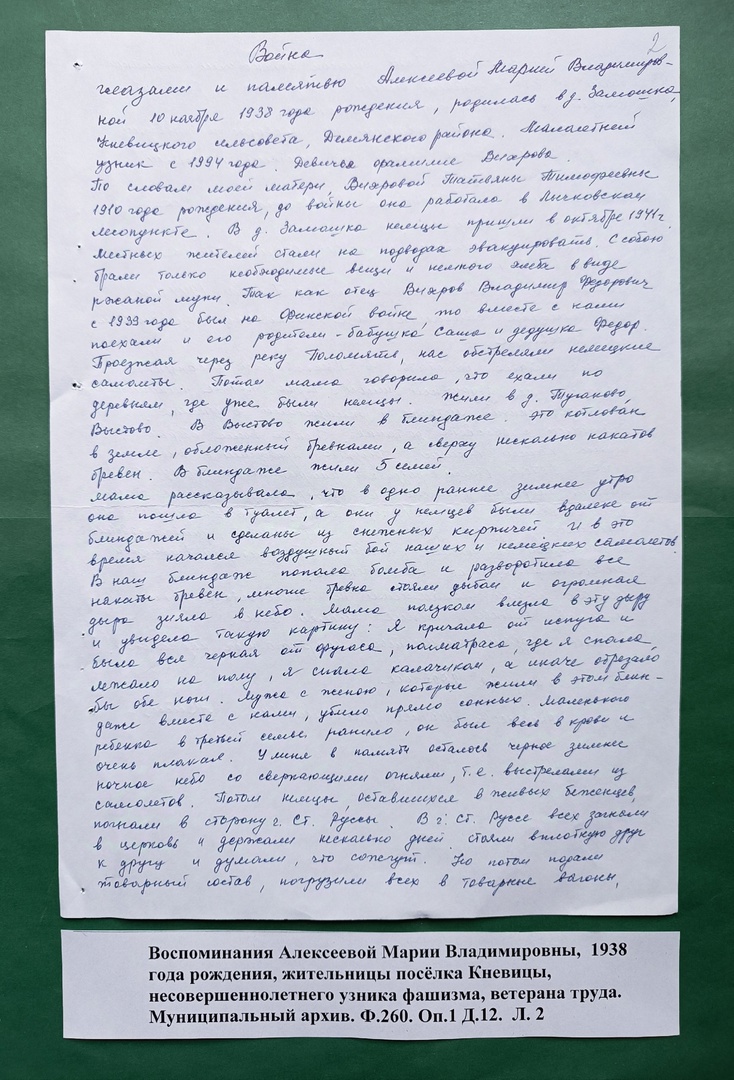 2
Война
глазами и памятью Алексеевой Марии Владимиров-
ной 10 ноября 1938 года рождения, родилась в д. Замошка,
Кневицкого сельсовета, Демянского района. Малолетний
узник с 1994 года. Девичья фамилие Вихрова.
По словам моей матери, Вихровой Татьяны Тимофеевны
1910 года рождения, до войны она работала в Лычковском
лесопункте. В д. Замошка немцы пришли в октябре 1941 г.
Местных жителей стали на подводах эвакуировать. С собою
брали только необходимые вещи и немного хлеба в виде
ржаной муки. Так как отец Вихров Владимир Федорович
с 1939 года был на Финской войне то вместе с нами
поехали и его родители - бабушка Саша и дедушка Федор.
Проезжая через реку Поломять, нас обстреляли немецкие
самолеты. Потом мама говорила, что ехали по
деревням, где уже были немцы. Жили в д. Тугаково,
Выстово. В Выстово жили в блиндаже. Это котлован
в земле, обложенный бревнами, а сверху несколько накатов
бревен. В блиндаже жили 5 семей.
Мама рассказывала, что в одно раннее зимнее утро
она пошла в туалет, а они у немцев были вдалеке от
блиндажей и сделаны из снежных кирпичей. И в это
время начался воздушный бой наших и немецких самолетов.
В наш блиндаж попала бомба и разворотила все
накаты бревен, многие бревна стояли дыбом и огромная
дыра зияла в небо. Мама ползком влезла в эту дыру
и увидела такую картину: Я кричала от испуга и
была вся черная от фугаса, полматраса, где я спала,
лежало на полу, я спала калачиком, а иначе отрезало
бы обе ноги. Мужа с женою, которые жили в этом блин-
даже вместе с нами, убило прямо сонных. Маленького
ребенка в третьей семье, ранило, он был весь в крови и
очень плакал. У меня в памяти осталось черное зимнее
ночное небо со сверкающими огнями, т.е. выстрелами из
самолетов. Потом немцы, оставшихся в живых беженцев,
погнали в сторону г. Ст. Руссы. В г. Ст. Руссе всех загнали
в церковь и держали несколько дней. Стояли вплотную друг
к другу и думали, что сожгут. Но потом подали
товарный состав, погрузили всех в товарные вагоны,
Воспоминания Алексеевой Марии Владимировны, 1938
года рождения, жительницы посёлка Кневицы,
несовершеннолетнего узника фашизма, ветерана труда.
Муниципальный архив. Ф.260. Оп.1 Д.12. Л. 2